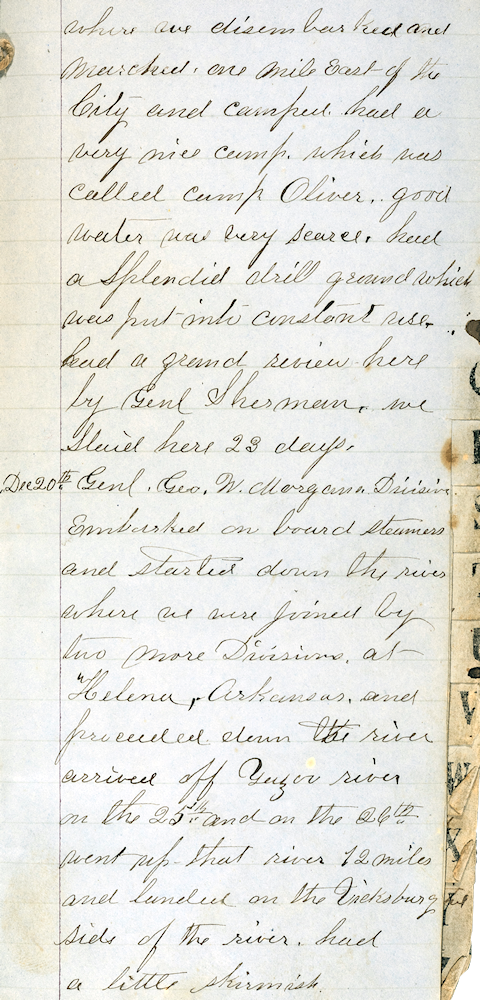 where we disembarked and
marched. one mile East of the
City and camped. had a
very nice camp. which was
called camp Oliver. good
water was very scarce. had
a Splendid drill ground which
was put into constant use.
had a grand review here
by Genl Sherman. we
Staid here 23 days.
Dec 20th Genl. Geo. W. Morgans. Division.
Embarked on board steamers
and started down the river
where we were joined by
two more Divisions. at
Helena, Arkansas. and
proceeded down the river
arrived off Yazoo river
on the 25th and on the 26th
went up that river 12 miles
and landed on the Vicksburg
side of the river. had
a little skirmish.